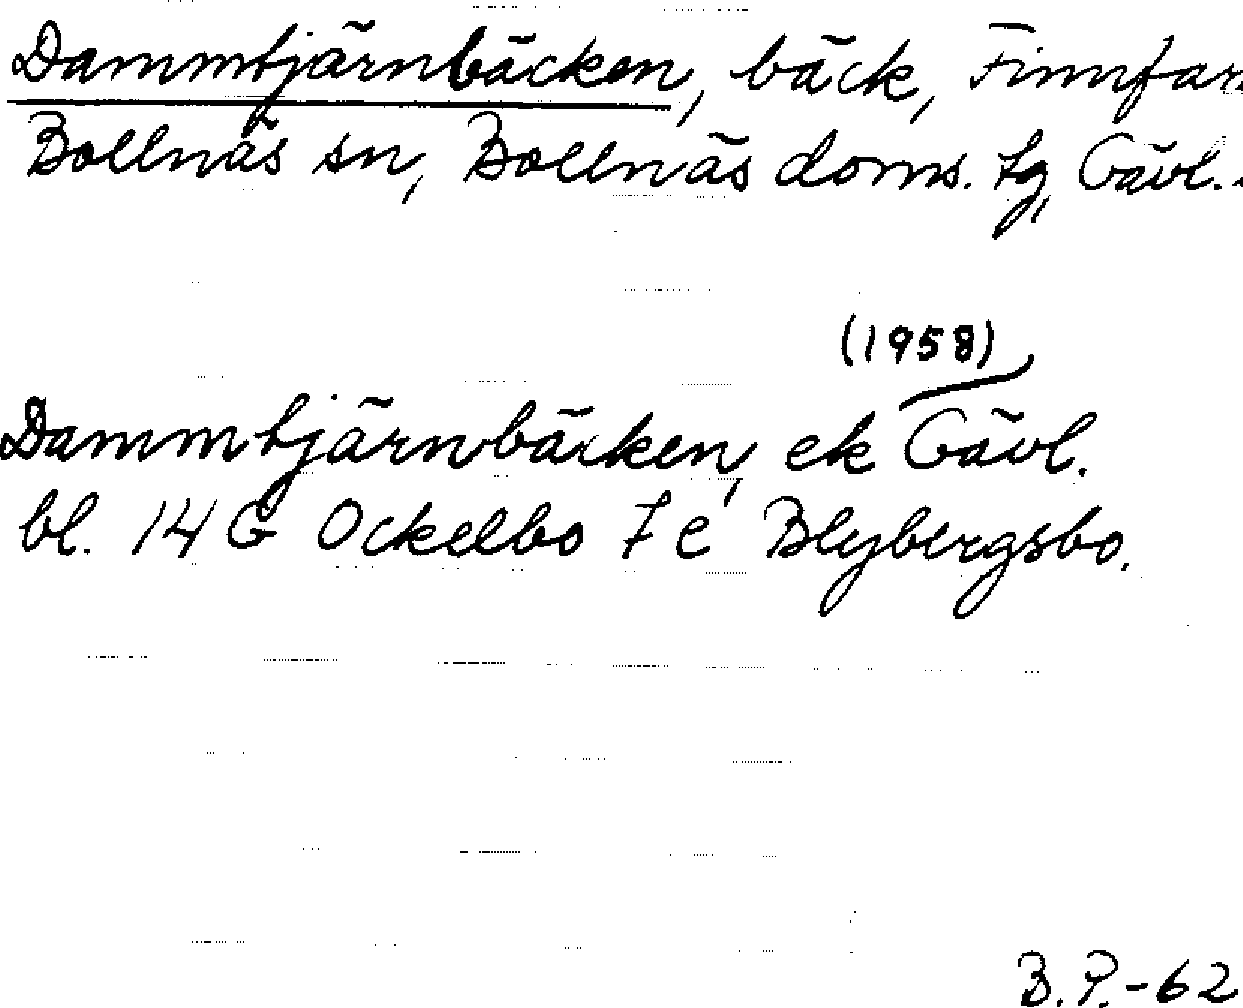 Dammtjärnbäcken, bäck, Finnfar
Bollnäs sn, Bollnäs doms. tg, Gävl.
(1958)
Dammtjärnbäcken, ek Gävl.
bl. 14 G Ockelbo 7 e Blybergsbo.
B.P.-62